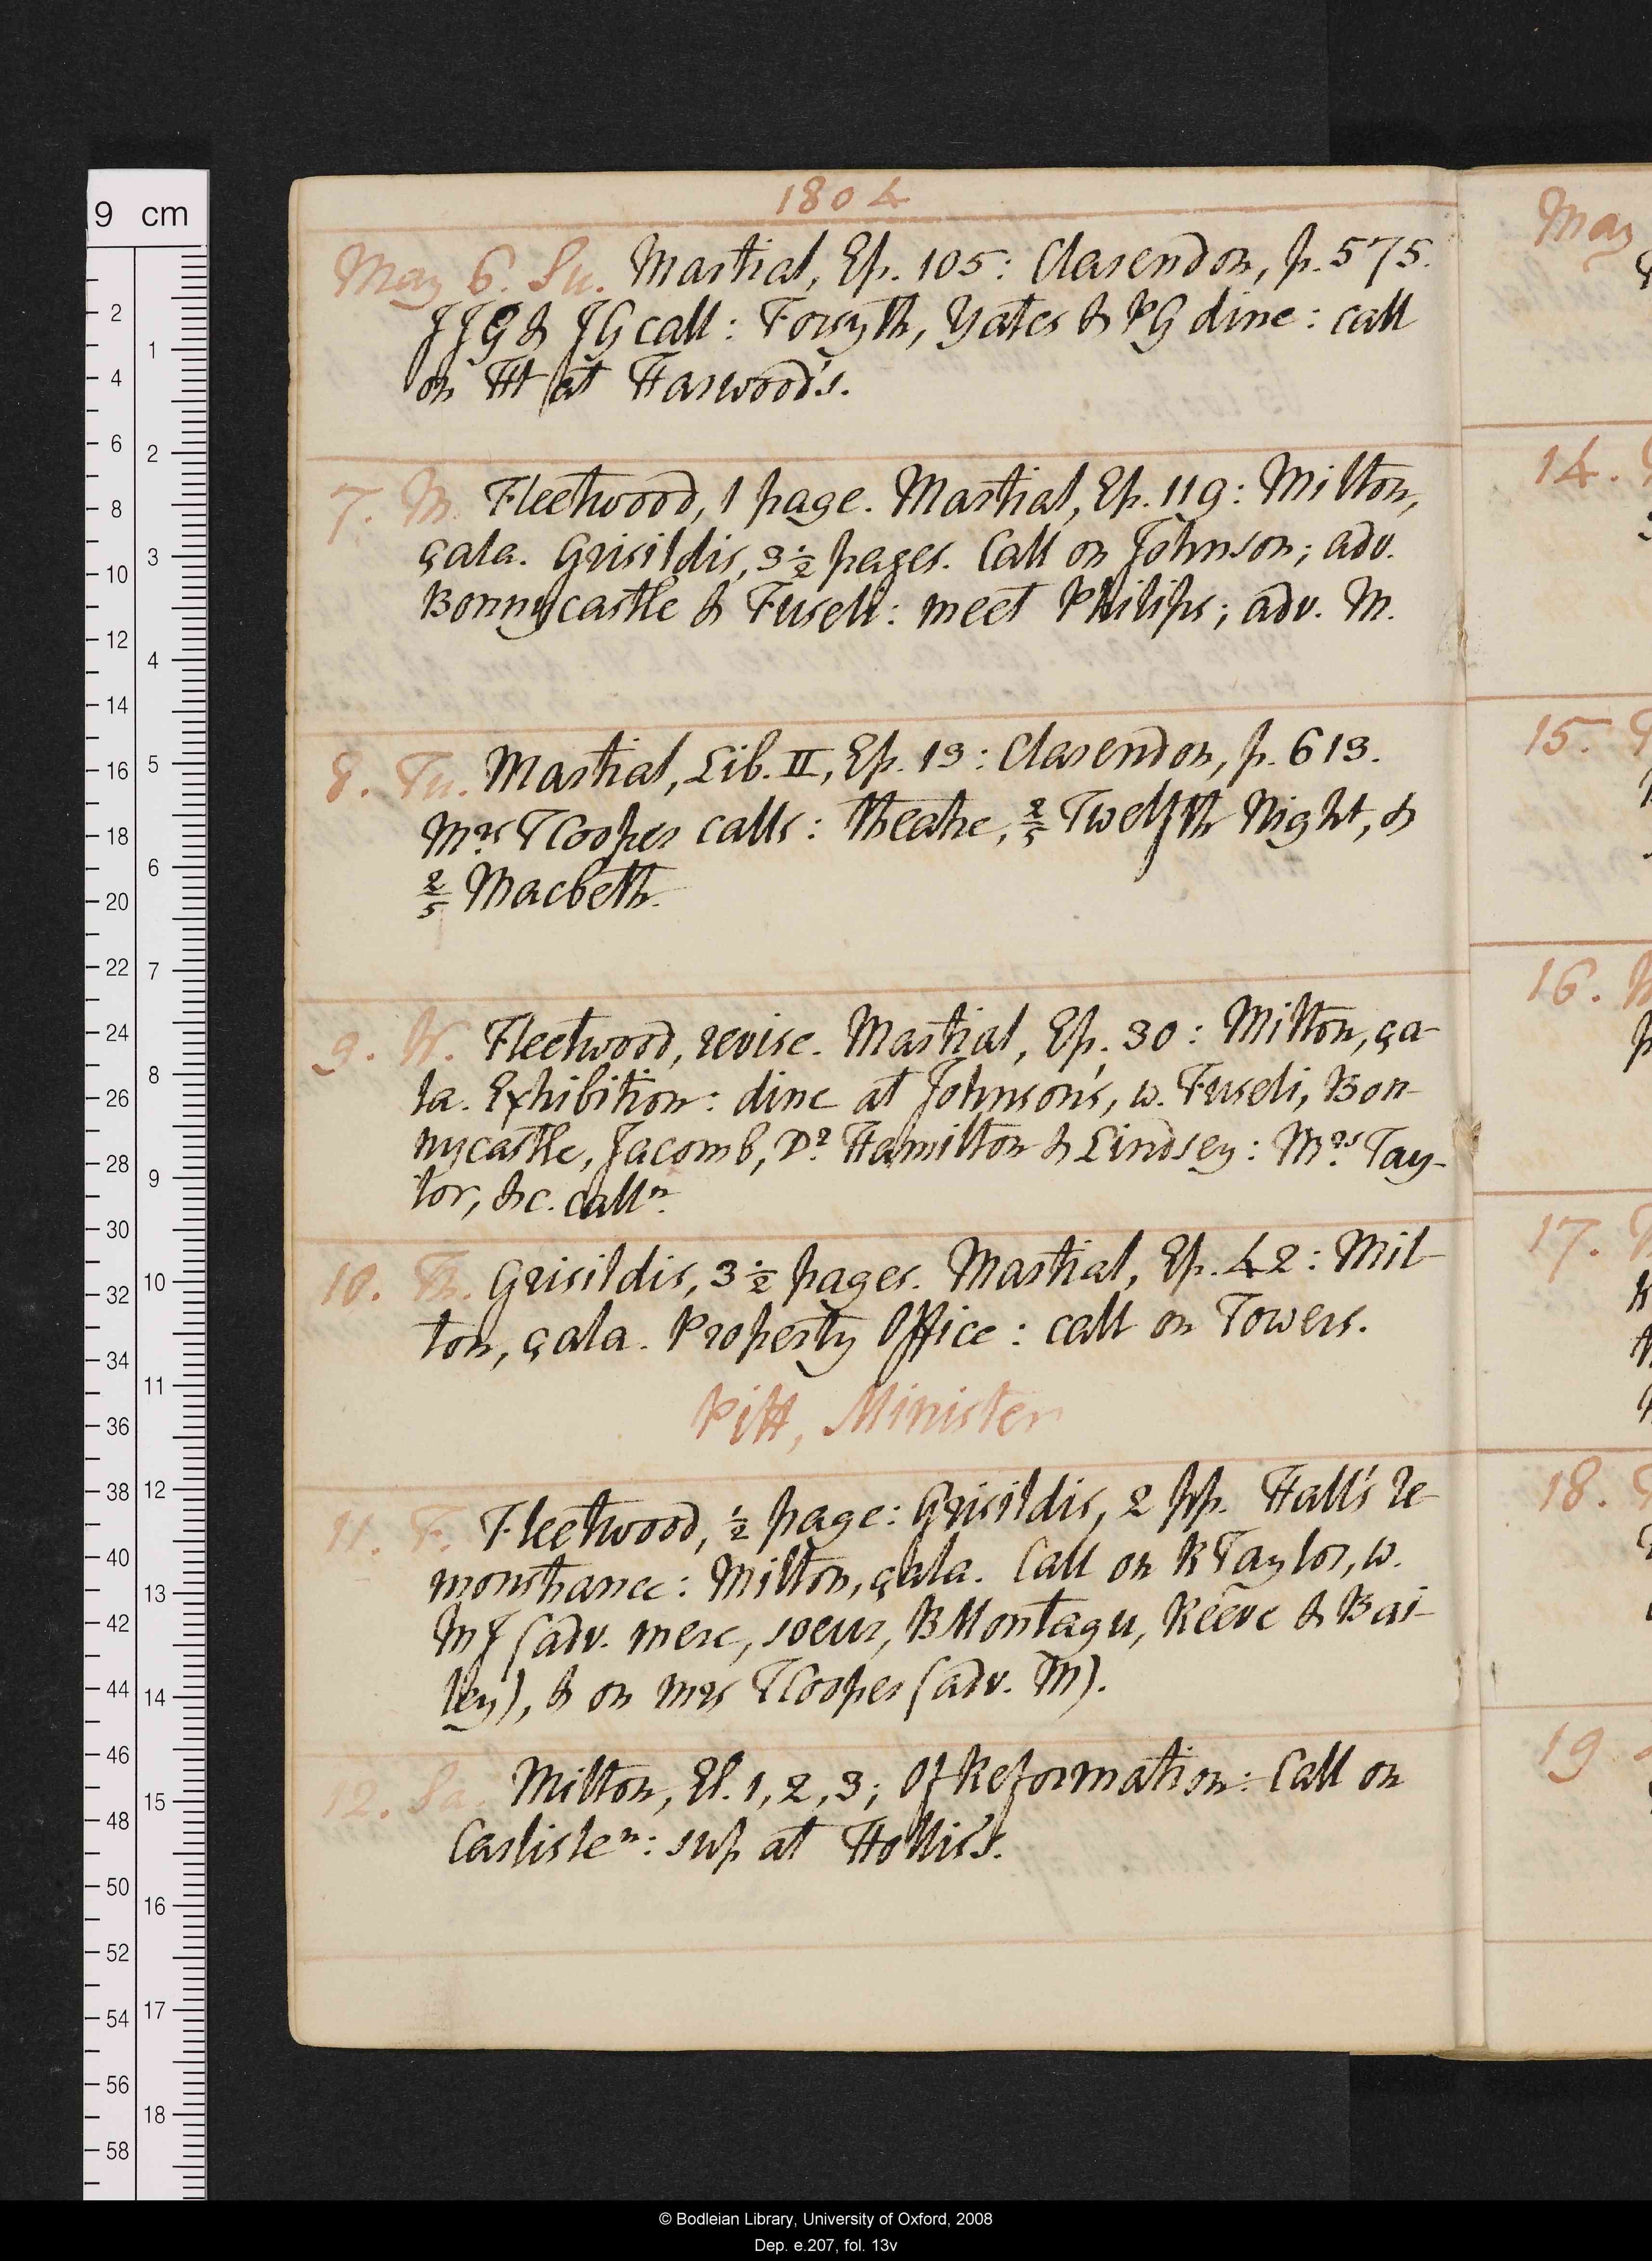 1804
May 6. Su. Martial, Ep. 105: Clarendon, p. 575.
JJG & JG call: Forsyth, Yates & PG dine: call
on Ht at Harwood's.
7. M. Fleetwood, 1 page. Martial, Ep. 119: Milton,
çala. Grisildis, 3 1/2 pages. Call on Johnson; adv.
Bonnycastle & Fuseli: meet Philips; adv. M.
8. Tu. Martial, Lib. II, Ep. 13: Clarendon, p. 613.
Mrs TCooper calls: theatre, 2/5 Twelfth Night, &
2/5 Macbeth.
9. W. Fleetwood, revise. Martial, Ep. 30: Milton, ça-
la. Exhibition: dine at Johnson's, w. Fuseli, Bon-
nycastle, Jacomb, Dr Hamilton & Lindsey: Mrs Tay-
lor, &c. call n.
10. Th. Grisildis, 3 1/2 pages. Martial, Ep. 42: Mil-
ton, çala. Property Office: call on Towers.
Pitt, Minister
11. F. Fleetwood, 1/2 page: Grisildis, 2 pp. Hall's Re-
monstrance: Milton, çala. Call on RTaylor, w.
MJ (adv. mere, soeur, BMontagu, Reeve & Bai-
ley), & on Mrs TCooper (adv. M).
12. Sa. Milton, El. 1, 2, 3; Of Reformation: Call on
Carlisle n: sup at Hollis's.
May
14.
15.
16.
17.
18.
19
9 cm
2 4 6 8 10 12 14 16 18 20 22 24 26 28 30 32 34 36 38 40 42 44 46 48 50 52 54 56 58
1 2 3 4 5 6 7 8 9 10 11 12 13 14 15 16 17 18
© Bodleian Library, University of Oxford, 2008
Dep. e.207, fol. 13v